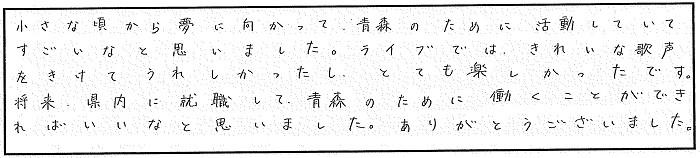 小さな頃から夢に向かって、青森のために活動していて
すごいなと思いました。ライブでは、きれいな歌声
をきけてうれしかったし、とても楽しかったです。
将来、県内に就職して、青森のために働くことができ
ればいいなと思いました。ありがとうございました。